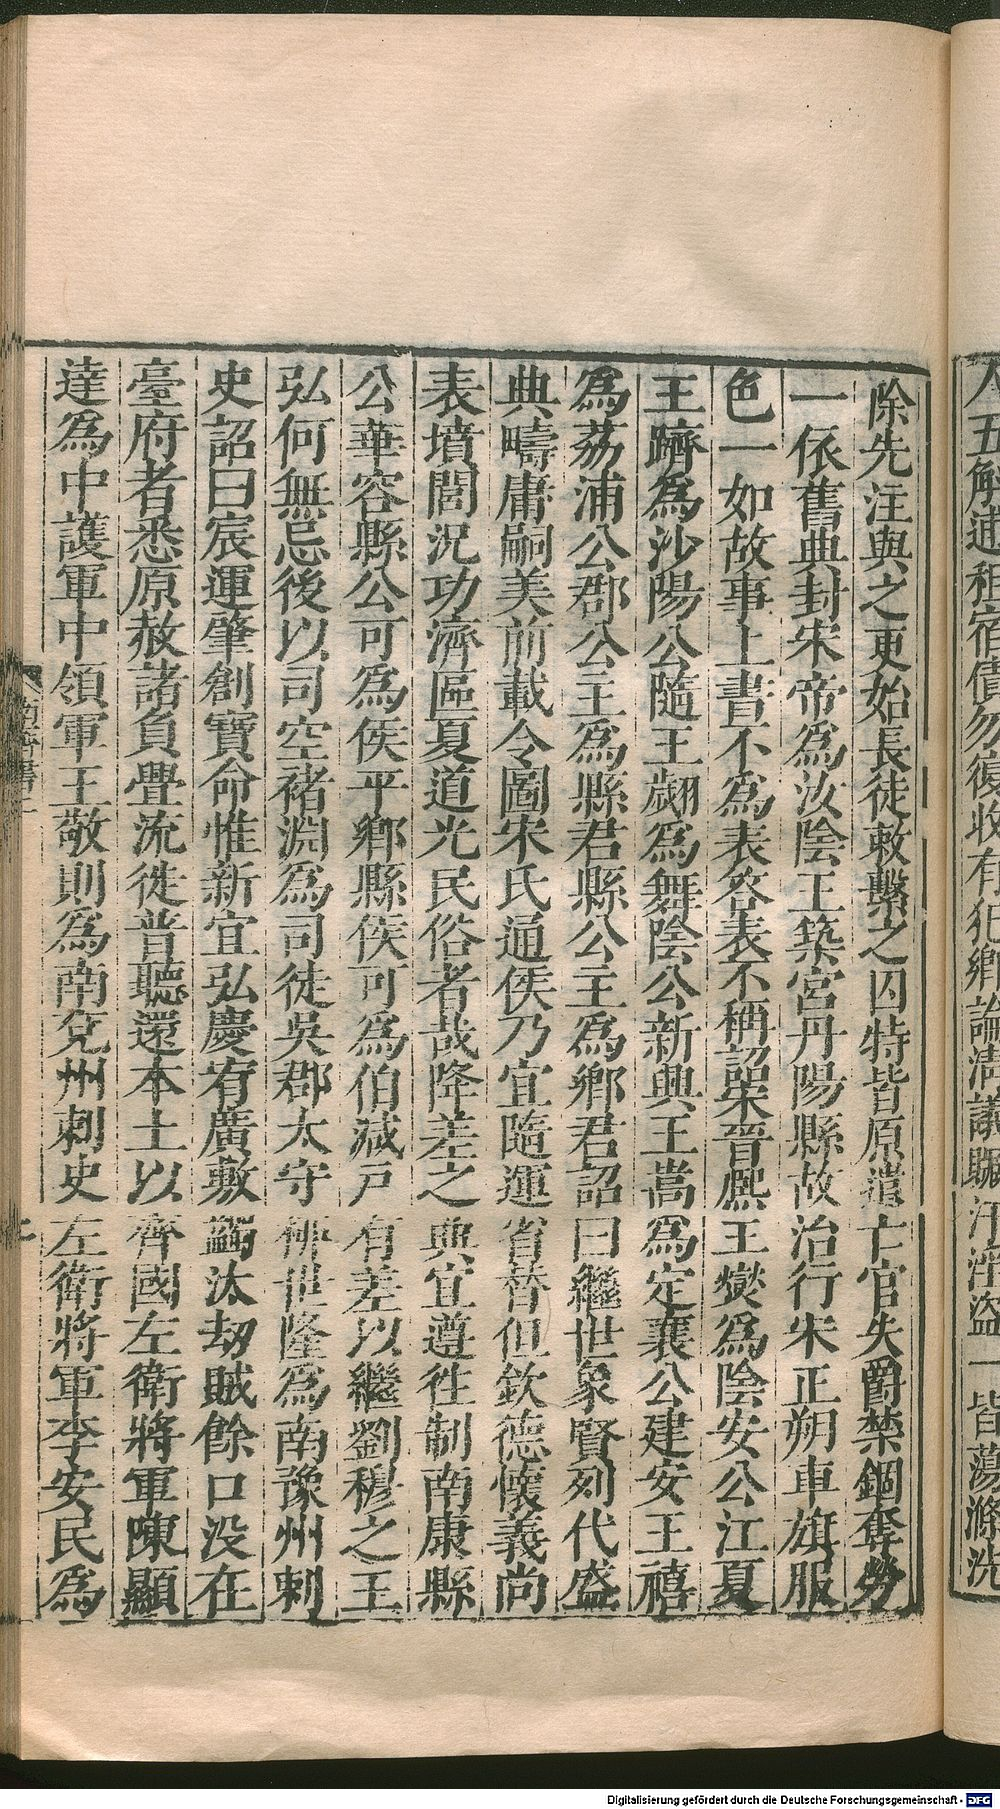 人五解逋租宿債勿復收有犯鄉論清議贓汙淫盜一皆蕩滌洗
除先注與之更始長徒敕繫之囚特皆原遣亡官失爵禁錮奪勞
一依舊典封宋帝爲汝陰王築宮丹陽縣故治行宋正朔車旗服
色一如故事上書不爲表答表不稱詔宋晉熙王燮爲陰安公江夏
王躋爲沙陽公隨王翽爲舞陰公新興王嵩爲定襄公建安王禧
爲荔浦公郡公主爲縣君縣公主爲鄉君詔曰繼世象賢列代盛
典疇庸嗣美前載令圖宋氏通侯乃宜隨運省替但欽德懷義尚
表墳閭況功濟區夏道光民俗者哉降差之典宜遵徃制南康縣
公華容縣公可爲侯平鄉縣侯可爲伯減戸有差以繼劉穆之王
弘何無忌後以司空褚淵爲司徒吳郡太守柳世隆爲南豫州刺
史詔曰宸運肇創寶命惟新宜弘慶宥廣敷蠲汰劫賊餘口没在
臺府者悉原赦諸負釁流徙普聽還本土以齊國左衛將軍陳顯
達爲中護軍中領軍王敬則爲南兗州刺史左衛將軍李安民爲
南齊書二
Digitalisierung gefördert durch die Deutsche Forschungsgemeinschaft - DFG